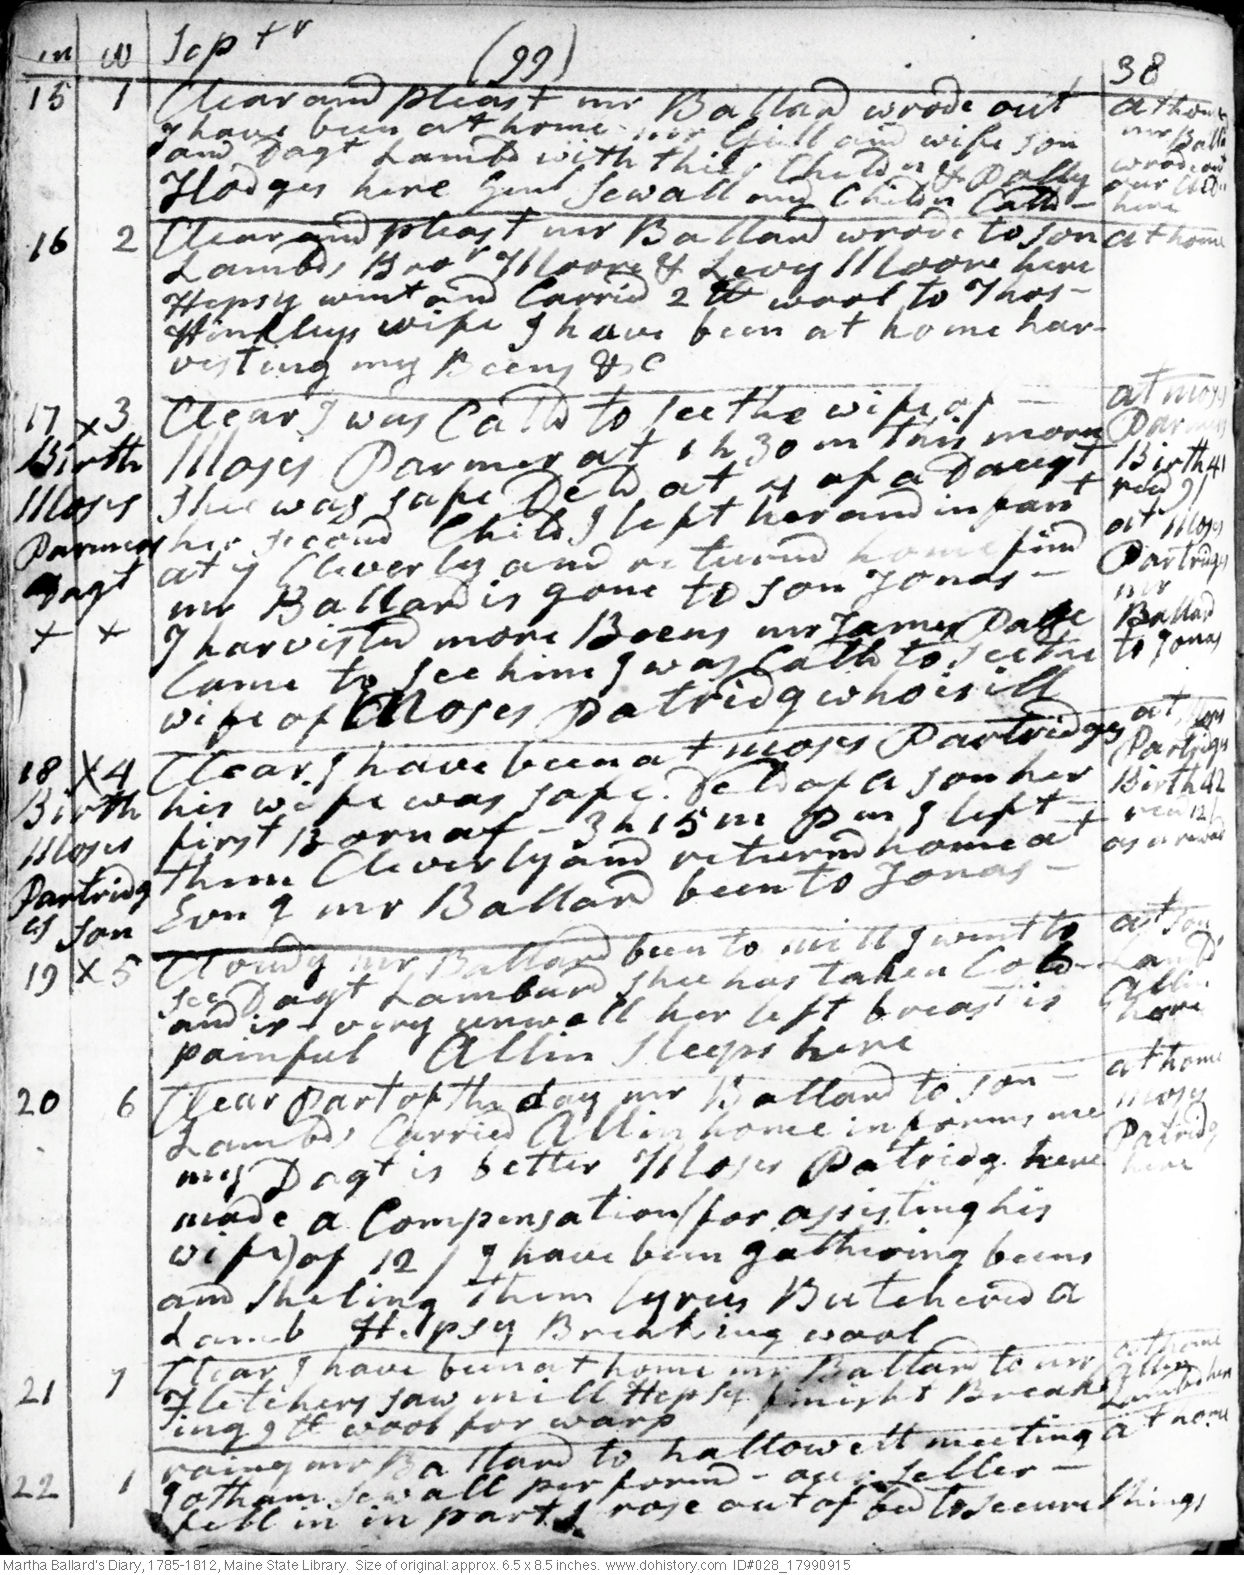 m w Septr (99) 38
15 1 Clear and pleast mr Ballard wrode out
I have been at home mr Gill and wife son
and Dagt Lambd with thier Childn & Dolly
Hodges here Genl Sewall and Childn Calld -
at home
mr Balld
wrode out
our Childn
here
16 2 Clear and pleast mr Ballard wrode to son
Lambds Bror Moore & Levy Moore here
Hepsy went and Carried 2 lb wool to Thos
Hinkleys wife I have been at home har-
vesting my Beens &c
at home
17 x 3 Clear I was Calld to see the wife of
Moses Parmer at 1 h 30 m this morn
shee was safe Deld at 4 of a Daugt
her second Child I left her and infant
at 7 Cleverly and returnd home find
mr Ballard is gone to son Jonas -
I harvistd more Beens mr James Page
Came to see him I was Calld to see the
wife of Moses Patridg who is ill
Birth
Moses
Parmers
Dagt
x x
at Moses
Parmers
Birth 41
recd 9/
at Moses
Partridges
mr
Ballard
to Jonas
18 x 4 Clear I have been at moses Partridges
his wife was safe Deld of a son her
first Born at - 3 h 15 m pm I left
them Cleverly and returnd home at
Evng mr Ballard been to Jonas -
Birth
Moses
Partridg
es son
at Moses
Partrigs
Birth 42
recd 12/
as
19 x 5 Cloudy mr Ballard been to mill I went to
see Dagt Lambard shee has taken Cold
and is - very unwell her left breast is
painful Allin sleeps here
at son
Lambds
Allin
here
20 6 Clear part of the day mr Ballard to son
Lambds Carried Allin home informs me
my Dagt is better Moses Patridg here
made a Compensation (for assisting his
wife) of 12 / I have been gathering beens
and sheling them Cyrus Butchered a
Lamb Hepsy Breaking wool
at home
Moses
Patridg
here
21 7 Clear I have been at home mr Ballard to mr
Fletchers saw mill Hepsy finisht Break
ing 9 lb wool for warp
at home
Allin
Lambd here
22 1 rainy mr Ballard to hallowell meeting
Jotham Sewall performd - our seller -
fell in in part I rose out of bed to secure things
at home
Martha Ballard's Diary, 1785-1812, Maine State Library. Size of original: approx. 6.5 x 8.5 inches. www.dohistory.com ID#028_17990915